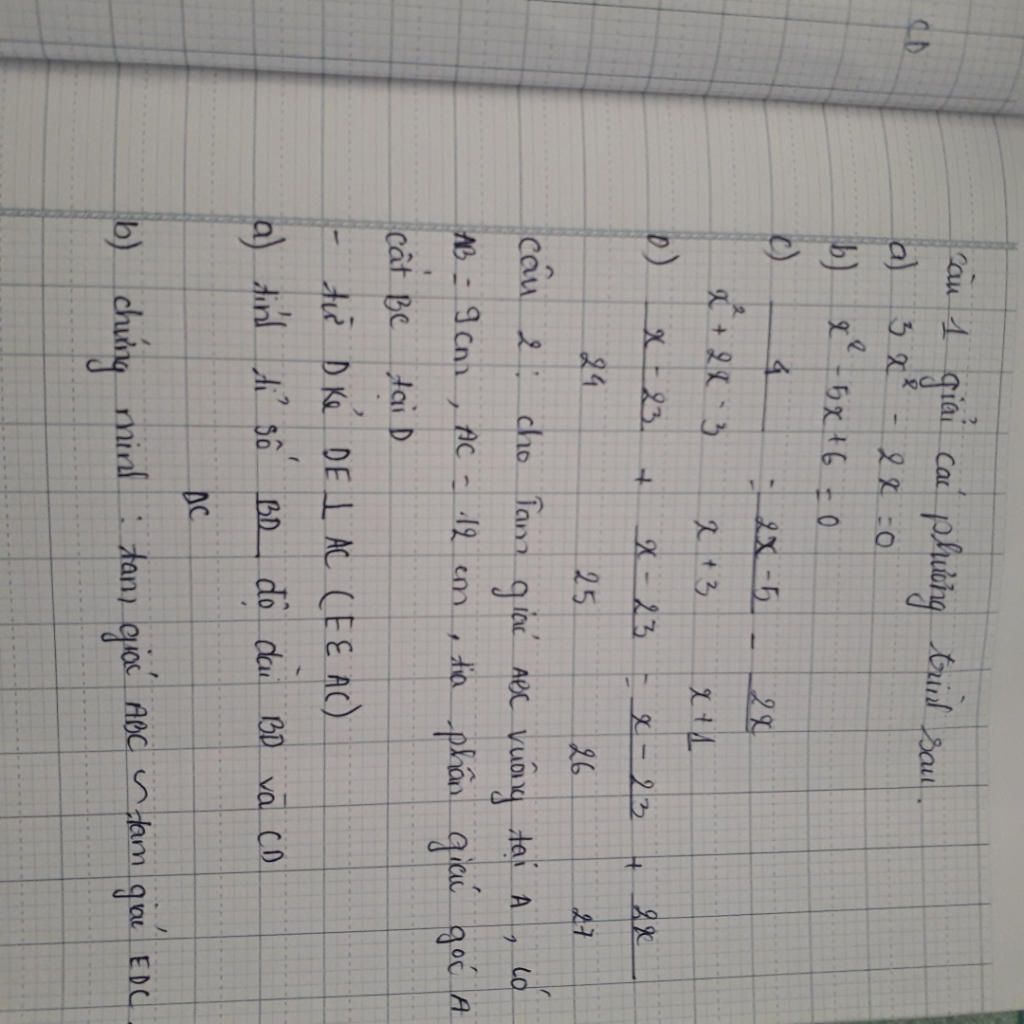 CD
Câu 1 giải các phương trình sau.
a) 3x² - 2x = 0
b) x² - 5x + 6 = 0
c) 4 = 2x - 5 - 2x
x² + 2x - 3 x + 3 x + 1
D) x - 23 + x - 23 = x - 23 + 2x
24 25 26 27
Câu 2 : cho Tam giác ABC vuông tại A, có
AB = 9cm, AC = 12 cm, tia phân giác góc A
cắt BC tại D
- từ D kẻ DE ⊥ AC (E ∈ AC)
a) tính tỉ số BD độ dài BD và CD
DC
b) chứng minh : tam giác ABC ∽ tam giác EDC.